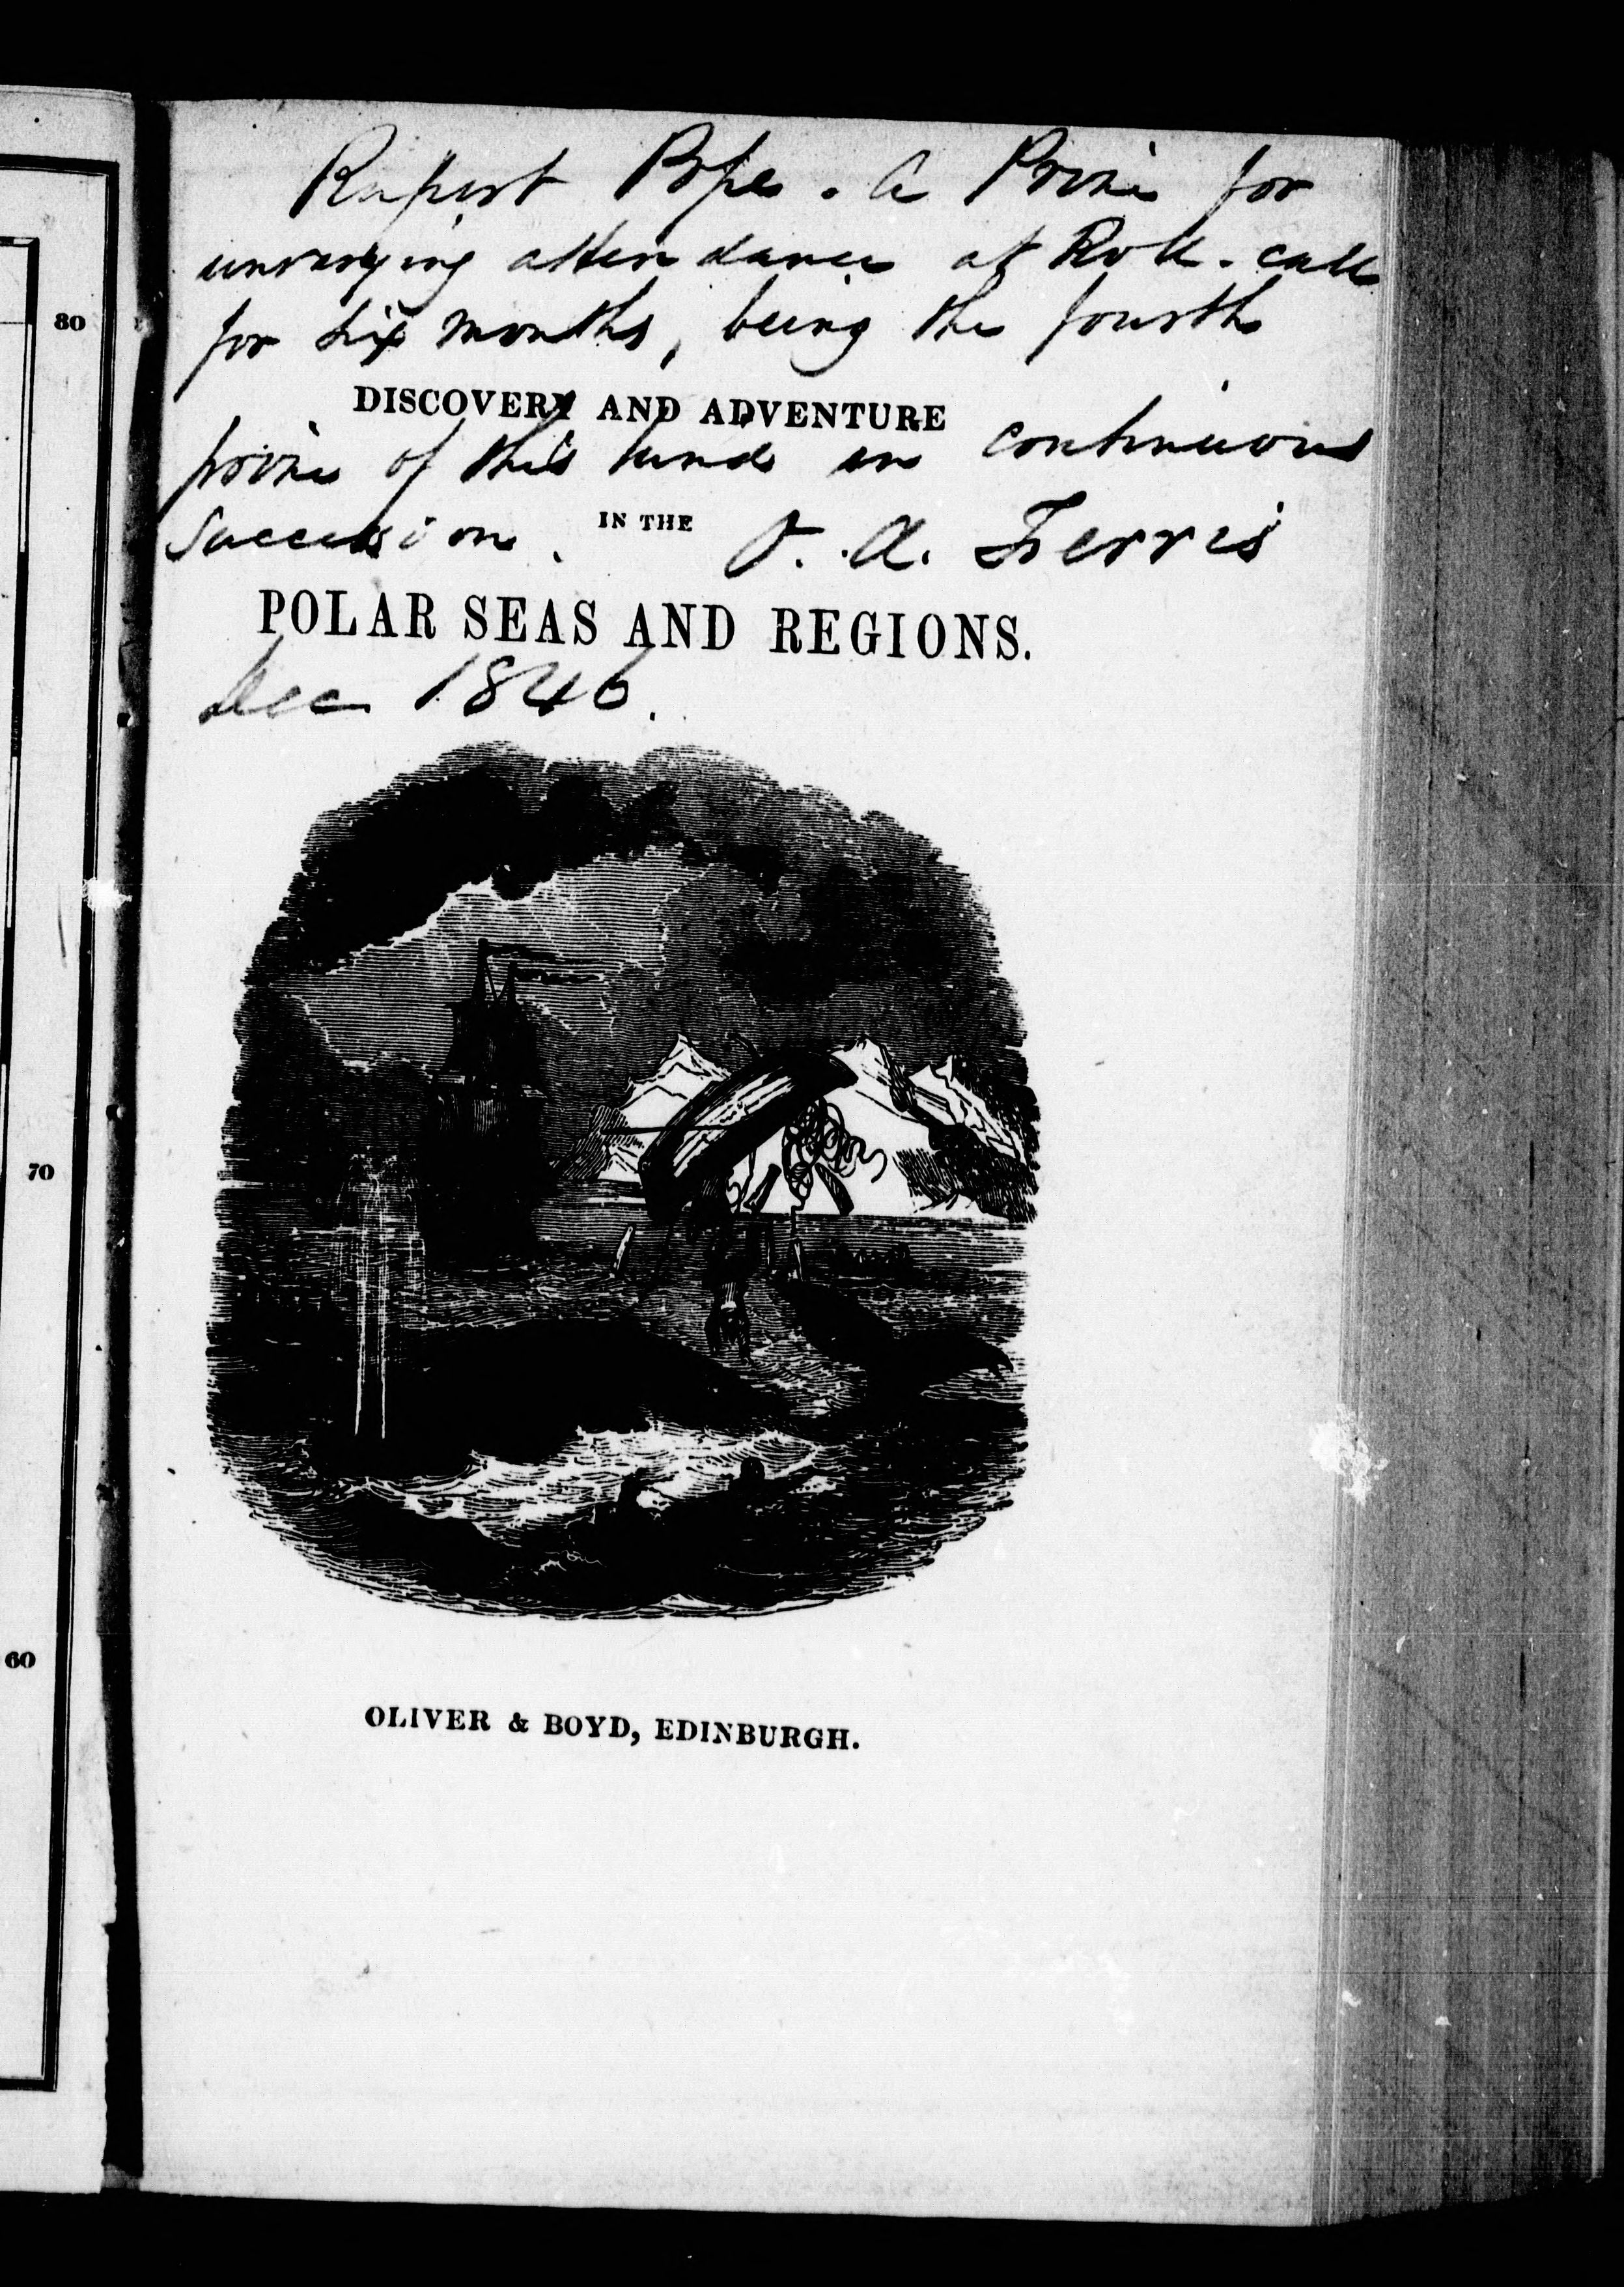 Rupert Pope. A Prize for
unvarying attendance at Roll-call
for six months, being the fourth
DISCOVERY AND ADVENTURE
prize of this kind in continuous
IN THE
succession. J. A. Ferris
POLAR SEAS AND REGIONS.
Dec 1846.
80
70
60
OLIVER & BOYD, EDINBURGH.